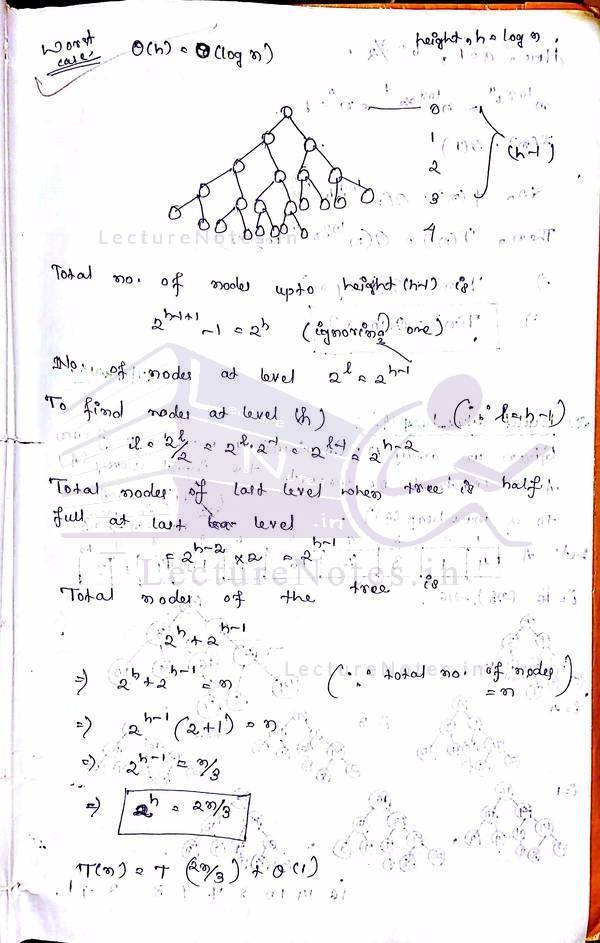 Worst case:
Θ(h) = Θ(log n)
height, h = log n
0
1
2
3
(h-1)
4
LectureNotes.in
Total no. of nodes upto height (h-1) is
2^{h-1+1} - 1 = 2^h (ignoring one)
No. of nodes at level 2^l = 2^{h-1}
To find nodes at level (h) (∵ l = h-1)
2^l/2 = 2^l . 2^{-1} = 2^{l-1} = 2^{h-2}
Total nodes of last level when tree is half
full at last level
= 2^{h-2} × 2 = 2^{h-1}
LectureNotes.in
Total nodes of the tree is
2^h + 2^{h-1}
LectureNotes.in
⇒ 2^h + 2^{h-1} = n (∵ total no. of nodes = n)
⇒ 2^{h-1} (2+1) = n
⇒ 2^{h-1} = n/3
⇒ 2^h = 2n/3
T(n) = T (2n/3) + O(1)